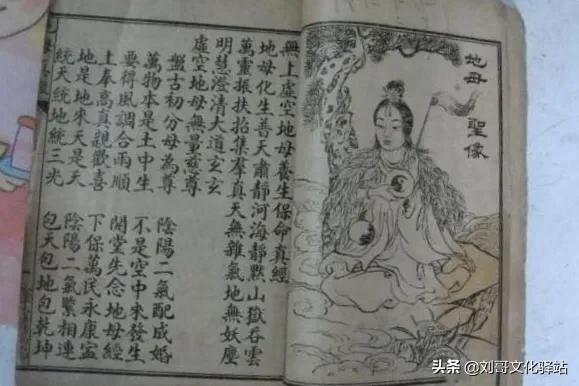 地母 聖像
無上虛空地母養生保命真經
地母化生善天肅靜河海靜默山嶽吞雲
萬靈振扶抬集羣真天無雜氣地無妖塵
明慧澄清大道玄玄
虛空地母無量慈尊
盤古初分母為尊 陰陽二氣配成婚
萬物本是土中生 不是空中來發生
要得風調合雨順 開堂先念地母經
土奉高真親歡喜 下保萬民永康寧
地是地來天是天 陰陽二氣緊相連
統天統地統三光 包天包地包乾坤
头条 @刘哥文化驿站